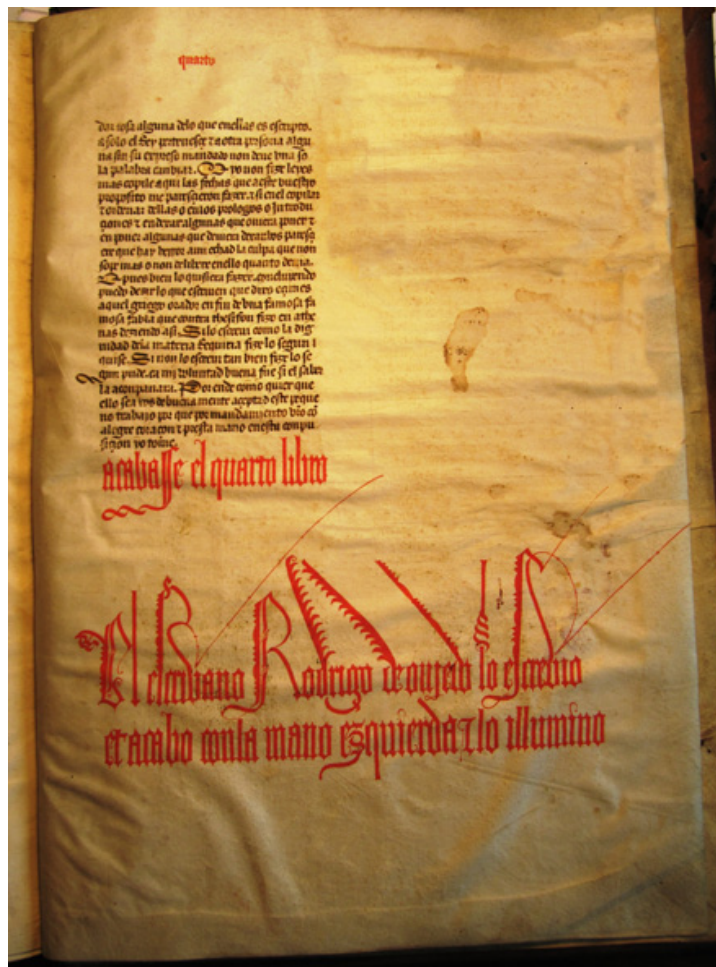 quarto
dar iose alguna dlo que enellas es escripto.
a solo el Rey pertenesçe τ a otra persona algu
na sin su expreso mandado non deue vna so
la palabra cambiar. yo non fize leyes
mas copile aqui las fechas que a este vuestro
proposito me paresçieron fazer. τ si en el copilar
τ ordenar dellas o en los prologos o introdu
çiones τ enderar algunas que ouiera poner τ
en poner algunas que deuiera dexar vos paresç
ere que hay error a mi echad la culpa que non
sope mas o non delibre en ello quanto deuia.
pues bien lo quisiera fazer. concluyendo
puedo dezir lo que escriuen que dixo eȝines
aquel griego orador en fin de vna famosa fa
mosa fabla que contra thesifon fizo en athe
nas deziendo asi. Si lo escreui como la dig
nidad dela materia Requiria fize lo segun
quise. Si non lo escreui tan bien fize lo se
gun pude. ca mi voluntad buena fue si el saber
la acompañara. Por ende como quier que
ello sea vos de buena mente aceptad este peque
no trabajo por que por mandamiento vro cō
alegre coraçon τ presta mano en esta conpu
siçion yo tome.
acabasse el quarto libro
El escriuano Rodrigo de ouiedo lo escreuio
et acabo conla mano ezquierda τ lo illumino